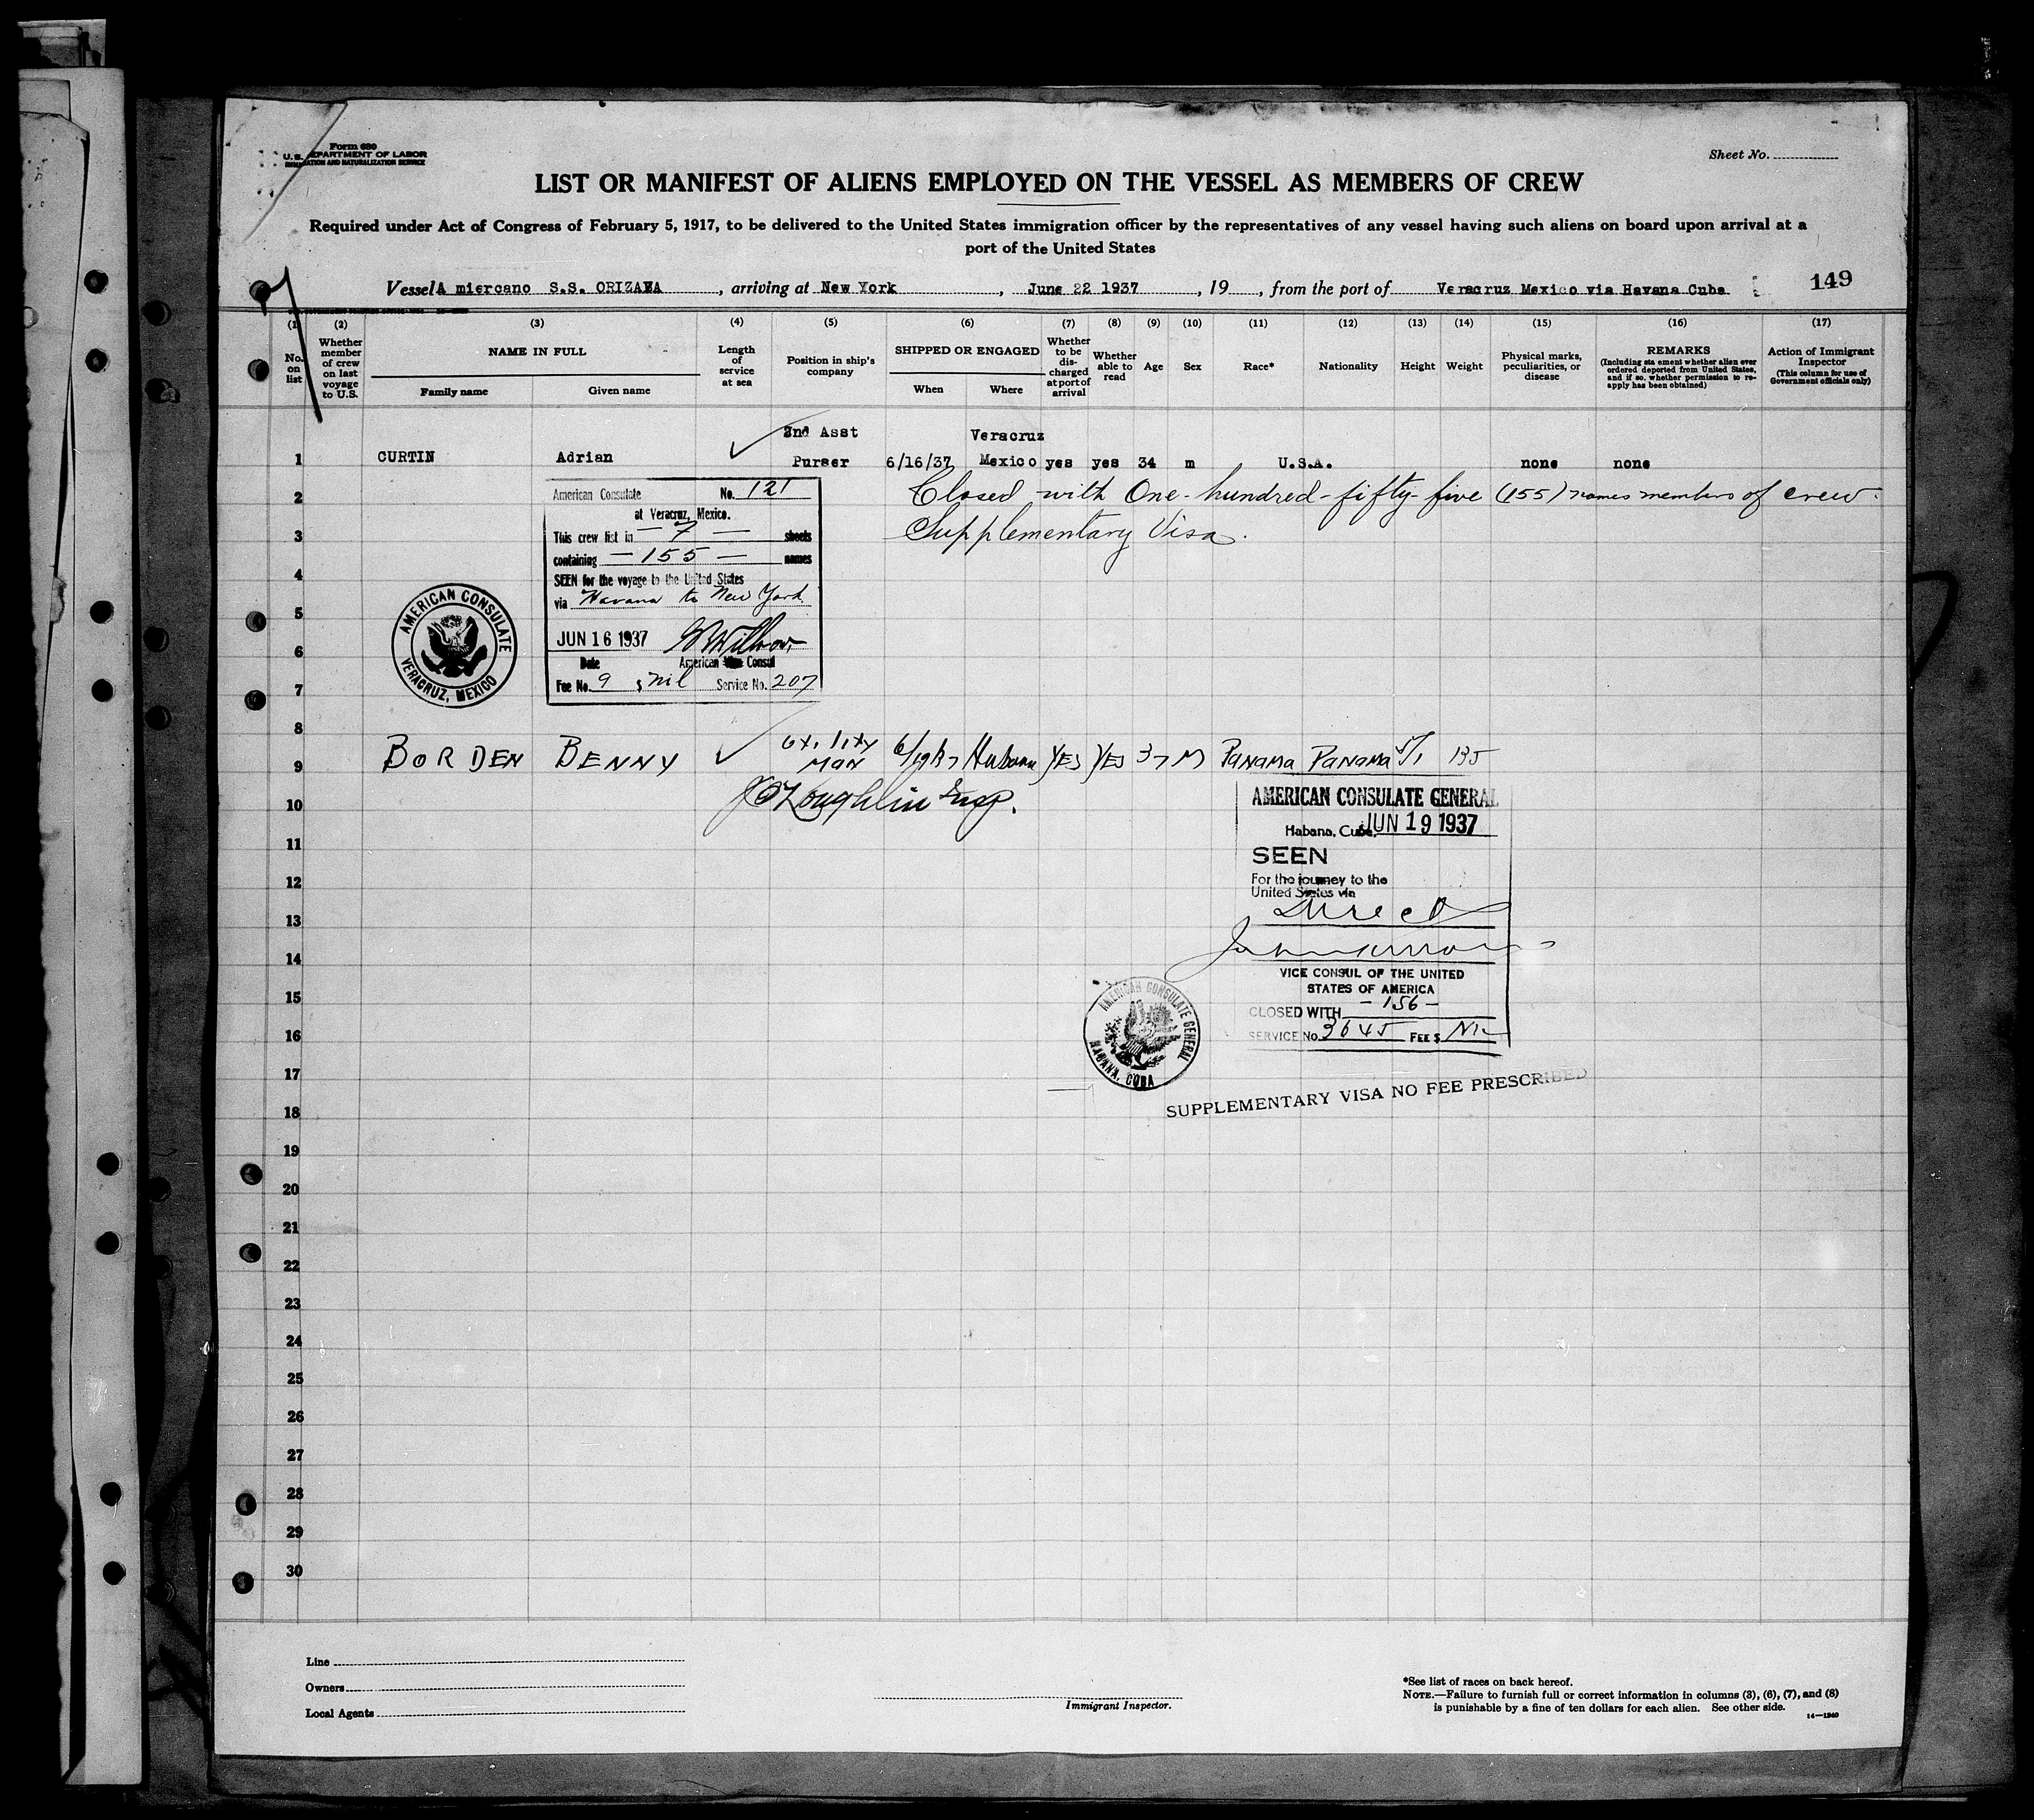 Form 680
U. S. DEPARTMENT OF LABOR
IMMIGRATION AND NATURALIZATION SERVICE
Sheet No.
LIST OR MANIFEST OF ALIENS EMPLOYED ON THE VESSEL AS MEMBERS OF CREW
Required under Act of Congress of February 5, 1917, to be delivered to the United States immigration officer by the representatives of any vessel having such aliens on board upon arrival at a
port of the United States
Vessel A miercano S.S. ORIZABA, arriving at New York, June 22 1937, 19, from the port of Veracruz Mexico via Havana Cuba 149
(1) (2) (3) (4) (5) (6) (7) (8) (9) (10) (11) (12) (13) (14) (15) (16) (17)
No. on list
Whether member of crew on last voyage to U.S.
NAME IN FULL
Family name
Given name
Length of service at sea
Position in ship's company
SHIPPED OR ENGAGED
When
Where
Whether to be discharged at port of arrival
Whether able to read
Age
Sex
Race*
Nationality
Height
Weight
Physical marks, peculiarities, or disease
REMARKS
(Including statement whether alien ever ordered deported from United States, and if so, whether permission to reapply has been obtained)
Action of Immigrant Inspector
(This column for use of Government officials only)
2nd Asst Veracruz
1 CURTIN Adrian Purser 6/16/37 Mexico yes yes 34 m U.S.A. none none
2 Closed with One-hundred-fifty-five (155) names members of crew.
3 Supplementary Visa.
American Consulate No. 121
at Veracruz, Mexico.
This crew list in — 7 — sheets
containing — 155 — names
SEEN for the voyage to the United States
via Havana to New York
JUN 16 1937
Date American Consul
Fee No. 9 $ nil Service No. 207
AMERICAN CONSULATE
VERACRUZ, MEXICO
4
5
6
7
8
9 BORDEN BENNY utility man 6/19/37 Habana YES YES 37 M Panama Panama 5/1 135
10 J O'Loughlin Insp.
11
12
13
14
15
16
17
18
19
20
21
22
23
24
25
26
27
28
29
30
AMERICAN CONSULATE GENERAL
Habana, Cuba, JUN 19 1937
SEEN
For the journey to the
United States via
Direct
VICE CONSUL OF THE UNITED
STATES OF AMERICA
CLOSED WITH - 156 -
SERVICE No. 3645 FEE $ Nil
AMERICAN CONSULATE GENERAL
HABANA, CUBA
SUPPLEMENTARY VISA NO FEE PRESCRIBED
Line
Owners
Local Agents
Immigrant Inspector.
*See list of races on back hereof.
NOTE.—Failure to furnish full or correct information in columns (3), (6), (7), and (8)
is punishable by a fine of ten dollars for each alien. See other side.
14—1240